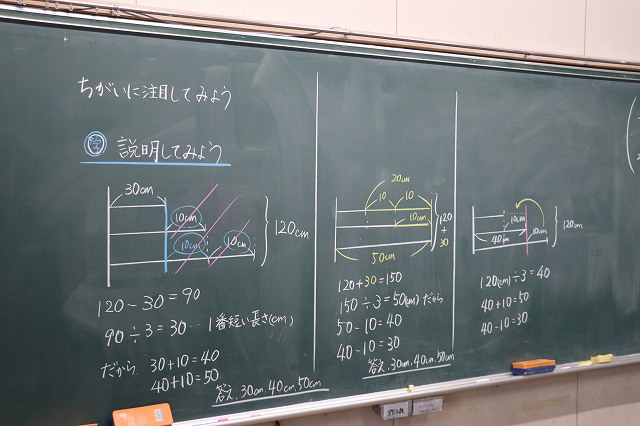 ちがいに注目してみよう
学 説明してみよう
30cm
10cm
10cm
10cm
120cm
120-30=90
90÷3=30… 1番短い長さ(cm)
だから 30+10=40
40+10=50
答え.30cm.40cm.50cm
20cm
10 10
10cm
50cm
120+30
120+30=150
150÷3=50(cm)だから
50-10=40
40-10=30
答え.30cm.40cm.50cm
10cm
40cm
10cm
120cm
120(cm)÷3=40
40+10=50
40-10=30